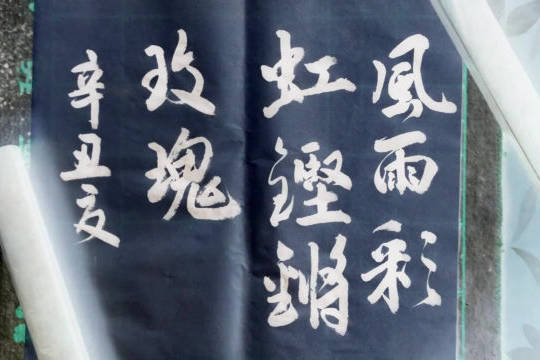 風雨彩
虹鏗鏘
玫瑰
辛丑夏